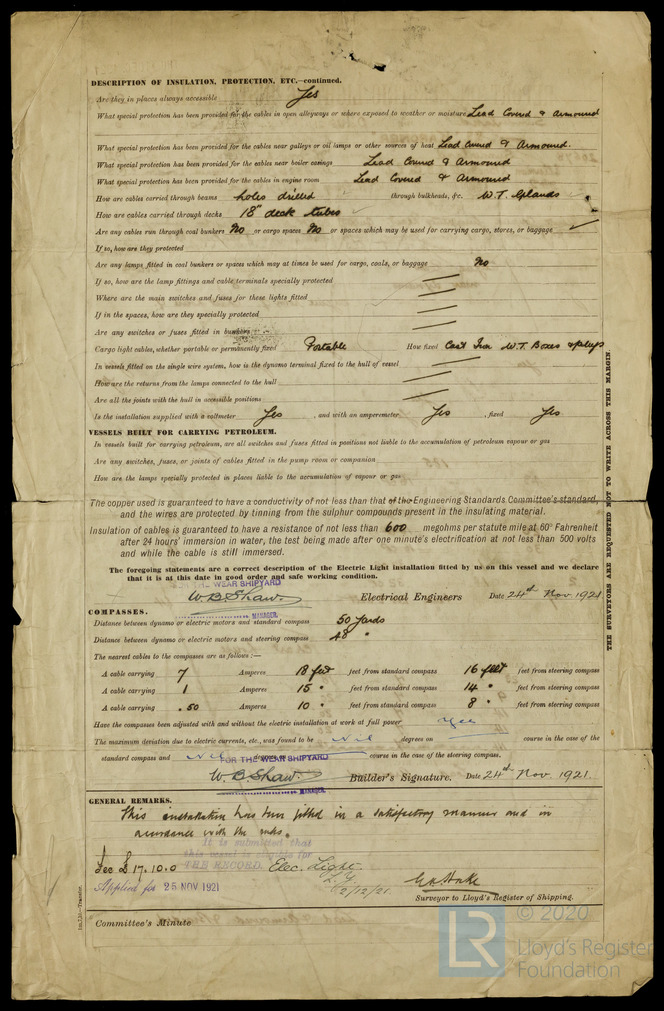 DESCRIPTION OF INSULATION, PROTECTION, ETC.—continued.
Are they in places always accessible Yes
What special protection has been provided for the cables in open alleyways or where exposed to weather or moisture Lead Covered & Armoured
What special protection has been provided for the cables near galleys or oil lamps or other sources of heat Lead Covered & Armoured.
What special protection has been provided for the cables near boiler casings Lead Covered & Armoured
What special protection has been provided for the cables in engine room Lead Covered & Armoured
How are cables carried through beams holes drilled through bulkheads, &c. W.T. Glands
How are cables carried through decks 18" deck tubes
Are any cables run through coal bunkers No or cargo spaces No or spaces which may be used for carrying cargo, stores, or baggage
If so, how are they protected
Are any lamps fitted in coal bunkers or spaces which may at times be used for cargo, coals, or baggage No
If so, how are the lamp fittings and cable terminals specially protected
Where are the main switches and fuses for these lights fitted
If in the spaces, how are they specially protected
Are any switches or fuses fitted in bunkers
Cargo light cables, whether portable or permanently fixed Portable How fixed Cast Iron W.T. Boxes & plugs
In vessels fitted on the single wire system, how is the dynamo terminal fixed to the hull of vessel
How are the returns from the lamps connected to the hull
Are all the joints with the hull in accessible positions
Is the installation supplied with a voltmeter Yes , and with an amperemeter Yes , fixed Yes
VESSELS BUILT FOR CARRYING PETROLEUM.
In vessels built for carrying petroleum, are all switches and fuses fitted in positions not liable to the accumulation of petroleum vapour or gas
Are any switches, fuses, or joints of cables fitted in the pump room or companion
How are the lamps specially protected in places liable to the accumulation of vapour or gas
The copper used is guaranteed to have a conductivity of not less than that of the Engineering Standards Committee's standard,
and the wires are protected by tinning from the sulphur compounds present in the insulating material.
Insulation of cables is guaranteed to have a resistance of not less than 600 megohms per statute mile at 60° Fahrenheit
after 24 hours' immersion in water, the test being made after one minute's electrification at not less than 500 volts
and while the cable is still immersed.
The foregoing statements are a correct description of the Electric Light installation fitted by us on this vessel and we declare
that it is at this date in good order and safe working condition.
THE WEAR SHIPYARD
W.B. Shaw. Electrical Engineers Date 24th Nov. 1921
MANAGER.
COMPASSES.
Distance between dynamo or electric motors and standard compass 50 yards
Distance between dynamo or electric motors and steering compass 48 "
The nearest cables to the compasses are as follows:—
A cable carrying 7 Amperes 18 feet feet from standard compass 16 feet feet from steering compass
A cable carrying 1 Amperes 15 " feet from standard compass 14 " feet from steering compass
A cable carrying .50 Amperes 10 " feet from standard compass 8 " feet from steering compass
Have the compasses been adjusted with and without the electric installation at work at full power Yes
The maximum deviation due to electric currents, etc., was found to be Nil degrees on course in the case of the
standard compass and Nil degrees on course in the case of the steering compass.
FOR THE WEAR SHIPYARD
W.B. Shaw. Builder's Signature. Date 24th Nov. 1921.
MANAGER.
GENERAL REMARKS.
This installation has been fitted in a satisfactory manner and in
accordance with the rules.
It is submitted that
this vessel for
THE RECORD. Elec. Light
Fee £17.10.0
2/12/21
Applied for 25 NOV 1921
Surveyor to Lloyd's Register of Shipping.
Committee's Minute
THE SURVEYORS ARE REQUESTED NOT TO WRITE ACROSS THIS MARGIN.
Transfer.
LR
© 2020
Lloyd's Register
Foundation